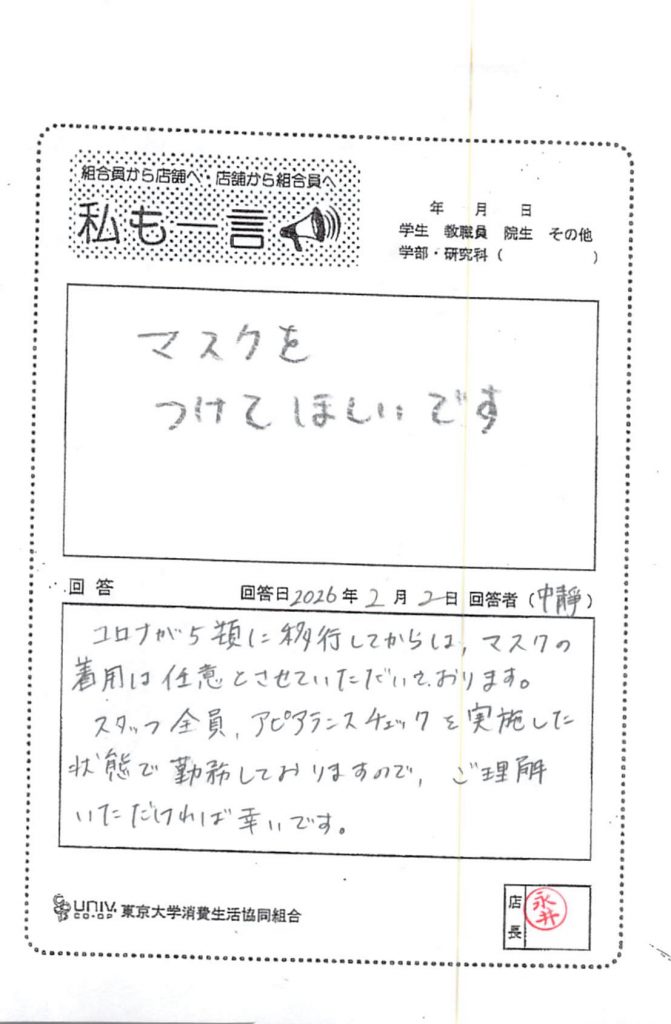 組合員から店舗へ・店舗から組合員へ
私も一言
年 月 日
学生 教職員 院生 その他
学部・研究科（ ）
マスクを
つけてほしいです
回答
回答日2026年2月2日 回答者（中靜）
コロナが5類に移行してからは、マスクの
着用は任意とさせていただいております。
スタッフ全員、アピアランスチェックを実施した
状態で勤務しておりますので、ご理解
いただければ幸いです。
UNIV.
CO-OP
東京大学消費生活協同組合
店長
永井